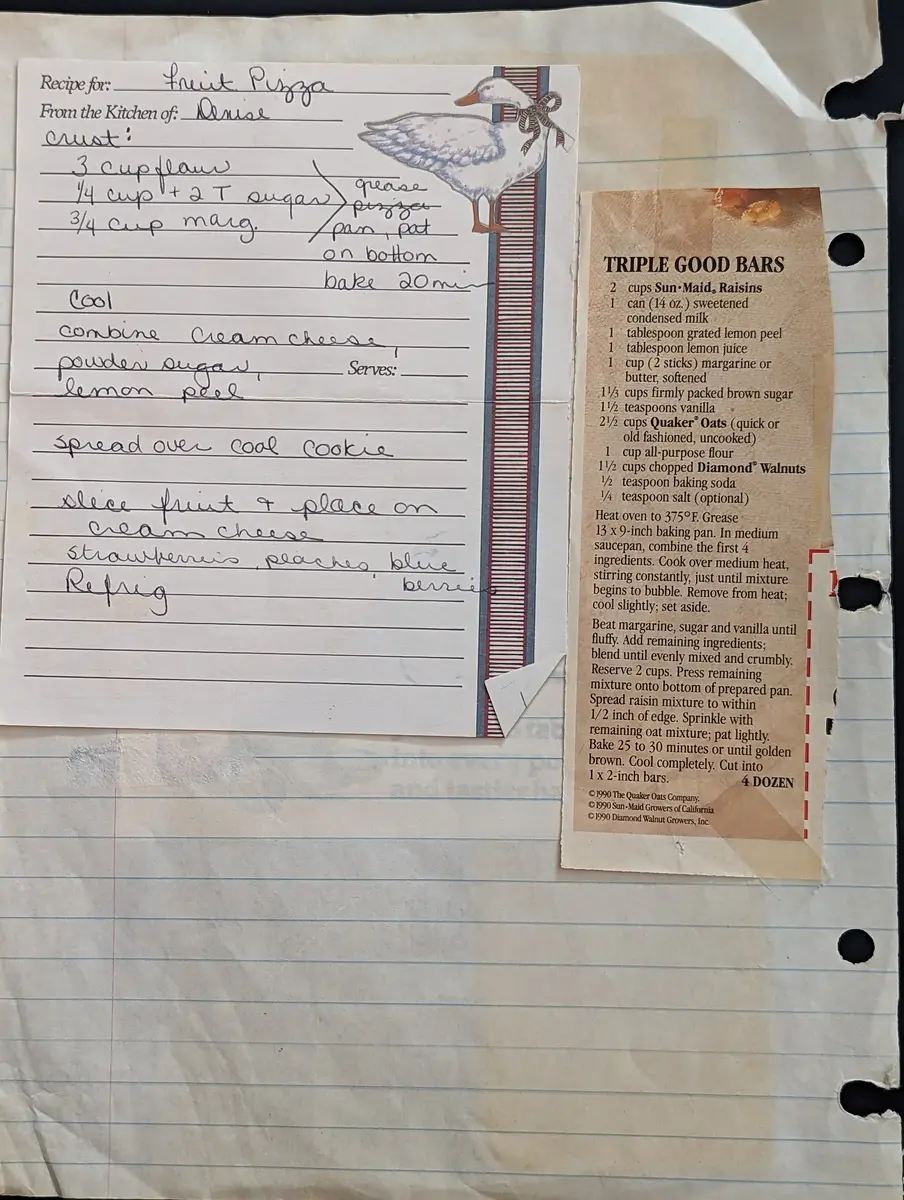 Recipe for: Fruit Pizza
From the Kitchen of: Denise
crust:
3 cup flour
1/4 cup + 2 T sugar
3/4 cup marg.
grease
pizza
pan, pat
on bottom
bake 20 min
Cool
combine cream cheese,
powder sugar,
Serves:
lemon peel
spread over cool cookie
slice fruit & place on
cream cheese
strawberries, peaches, blue
berries
Refrig
TRIPLE GOOD BARS
2 cups Sun•Maid® Raisins
1 can (14 oz.) sweetened
condensed milk
1 tablespoon grated lemon peel
1 tablespoon lemon juice
1 cup (2 sticks) margarine or
butter, softened
1 1/3 cups firmly packed brown sugar
1 1/2 teaspoons vanilla
2 1/2 cups Quaker® Oats (quick or
old fashioned, uncooked)
1 cup all-purpose flour
1 1/2 cups chopped Diamond® Walnuts
1/2 teaspoon baking soda
1/4 teaspoon salt (optional)
Heat oven to 375°F. Grease
13 x 9-inch baking pan. In medium
saucepan, combine the first 4
ingredients. Cook over medium heat,
stirring constantly, just until mixture
begins to bubble. Remove from heat;
cool slightly; set aside.
Beat margarine, sugar and vanilla until
fluffy. Add remaining ingredients;
blend until evenly mixed and crumbly.
Reserve 2 cups. Press remaining
mixture onto bottom of prepared pan.
Spread raisin mixture to within
1/2 inch of edge. Sprinkle with
remaining oat mixture; pat lightly.
Bake 25 to 30 minutes or until golden
brown. Cool completely. Cut into
1 x 2-inch bars.
4 DOZEN
© 1990 The Quaker Oats Company.
© 1990 Sun•Maid Growers of California
© 1990 Diamond Walnut Growers, Inc.